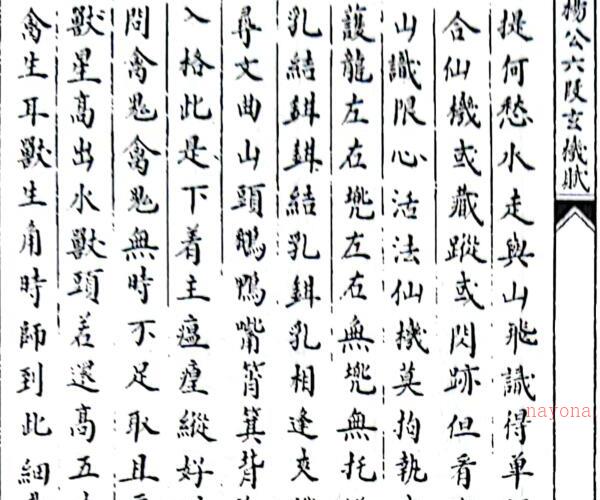 楊公六段玄機賦
何愁水走與山飛識得單
合仙機或藏蹤或閃跡但看
山識限心活法仙機莫拘執
護龍左在兠左右無兠無托
乳結鉗鉗結乳鉗乳相逢夾
尋文曲山頭鵝鴨嘴筲箕背
入格此是下着主瘟縱好
問禽鬼禽鬼無時不足取且
獸星高出水獸頭若還高五
禽生耳獸生角時師到此細
nayona